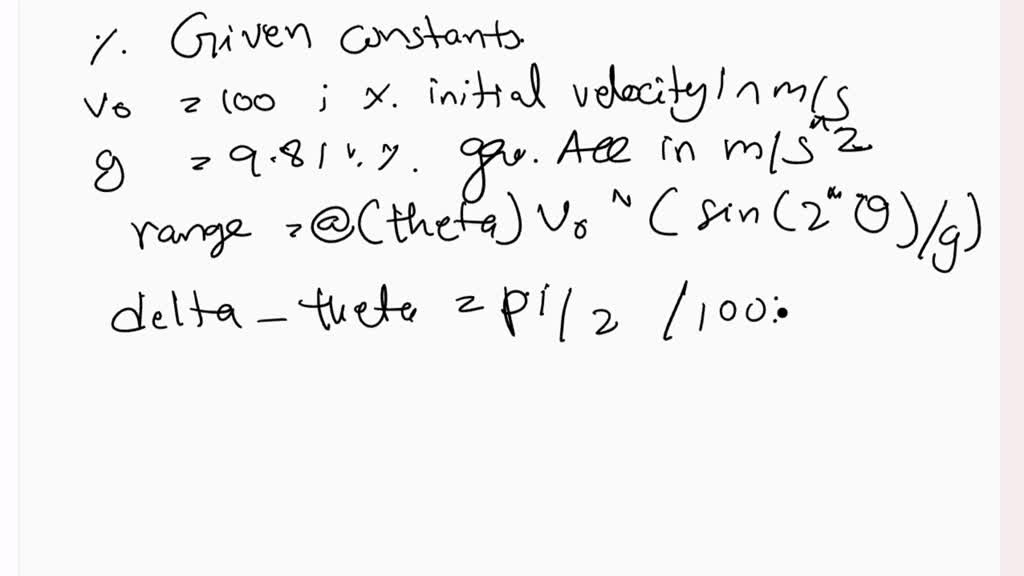 %. Given constants.
v0 = 100 ; %. initial velocity in m/s
g = 9.81 ; %. Acc in m/s^2
range = @(theta) V0 ^ (sin(2*θ)/g)
delta_theta = pi/2 /100;